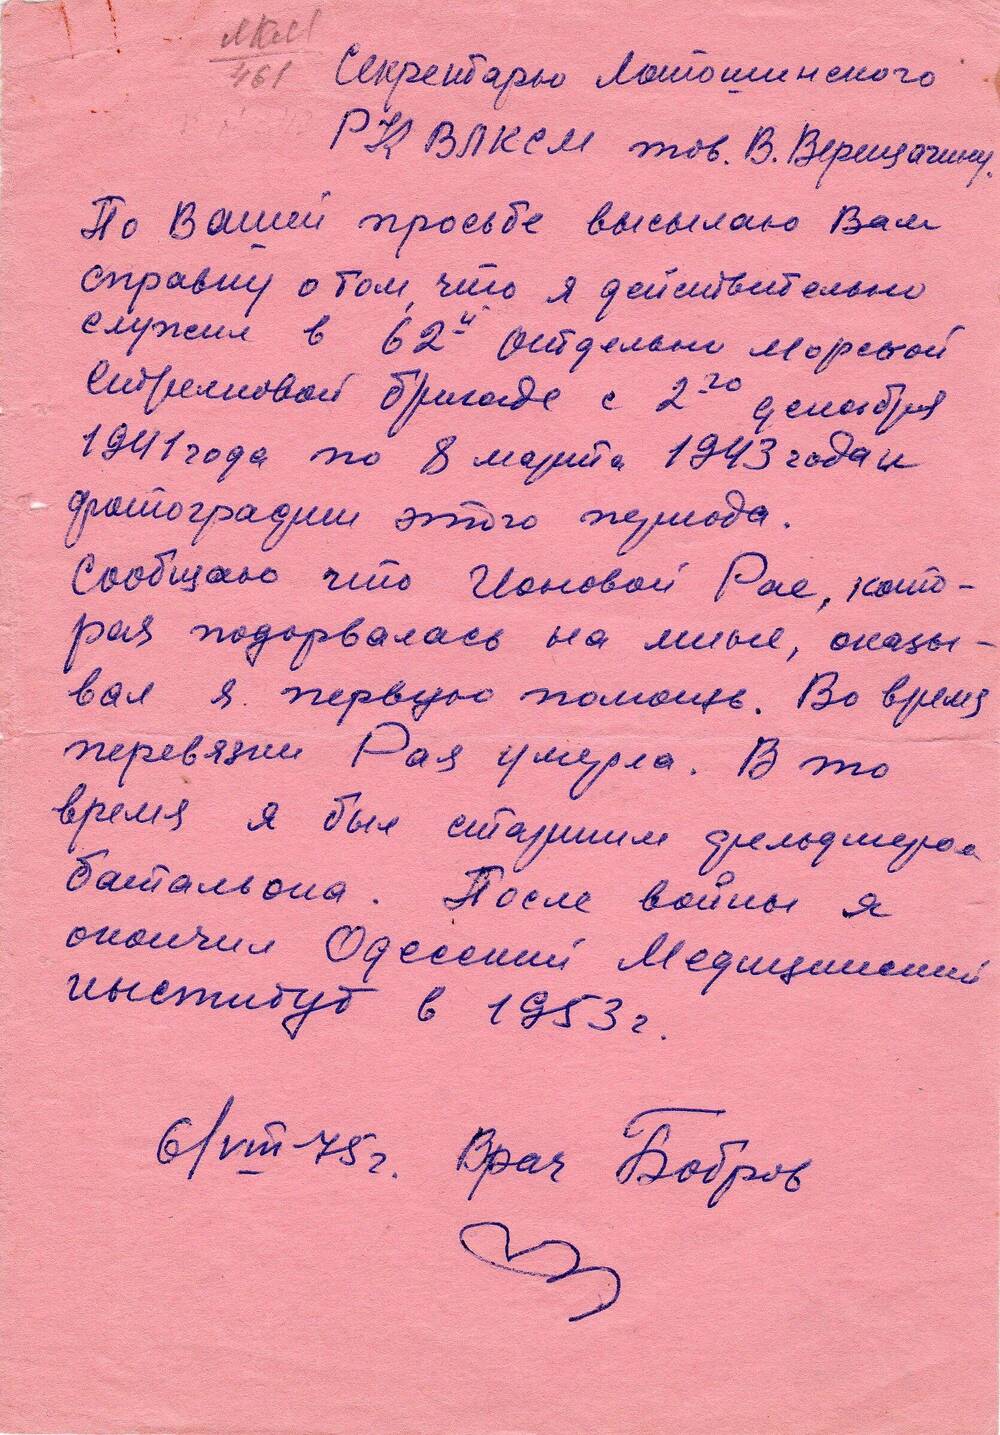 ЛКМ
461
Секретарю Лотошинского
РК ВЛКСМ тов. В. Верещагину.
По Вашей просьбе высылаю Вам
справку о том, что я действительно
служил в 62й отдельно морской
стрелковой бригаде с 2го декабря
1941 года по 8 марта 1943 года и
фотографии этого периода.
Сообщаю что Ионовой Рае, кото-
рая подорвалась на мине, оказы-
вал я первую помощь. Во время
перевязки Рая умерла. В то
время я был старшим фельдшером
батальона. После войны я
окончил Одесский Медицинский
институт в 1953 г.
6/VIII-75 г. Врач Бобров